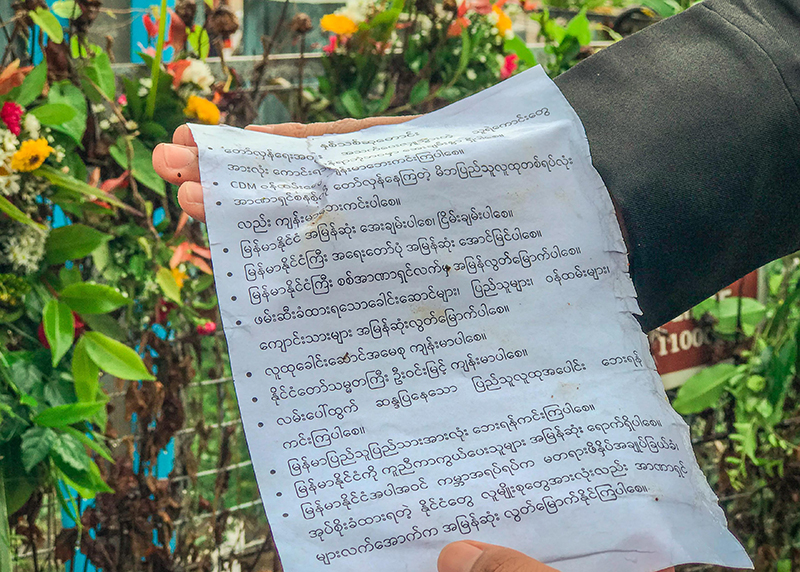 • တော်လှန်ရေးအတွ
အားလုံး ကောင်း
• CDM
အာဏာရှင်စနစ်ကို တော်လှန်နေကြတဲ့ မိဘပြည်သူလူထုတစ်ရပ်လုံး
လည်း ကျန်းမာဘေးကင်းပါစေ။
• မြန်မာနိုင်ငံ အမြန်ဆုံး အေးချမ်းပါစေ၊ ငြိမ်းချမ်းပါစေ။
• မြန်မာနိုင်ငံကြီး အရေးတော်ပုံ အမြန်ဆုံး အောင်မြင်ပါစေ။
• မြန်မာနိုင်ငံကြီး စစ်အာဏာရှင်လက်မှ အမြန်လွတ်မြောက်ပါစေ။
• ဖမ်းဆီးခံထားရသောခေါင်းဆောင်များ၊ ပြည်သူများ၊ ဝန်ထမ်းများ၊
ကျောင်းသားများ အမြန်ဆုံးလွတ်မြောက်ပါစေ။
• လူထုခေါင်းဆောင်အမေစု ကျန်းမာပါစေ။
• နိုင်ငံတော်သမ္မတကြီး ဦးဝင်းမြင့် ကျန်းမာပါစေ။
• လမ်းပေါ်ထွက် ဆန္ဒပြနေသော ပြည်သူလူထုအပေါင်း ဘေးရန်
ကင်းကြပါစေ။
• မြန်မာပြည်သူပြည်သားအားလုံး ဘေးရန်ကင်းကြပါစေ။
• မြန်မာနိုင်ငံကို ကူညီကာကွယ်ပေးသူများ အမြန်ဆုံး ရောက်ရှိပါစေ။
• မြန်မာနိုင်ငံအပါအဝင် ကမ္ဘာအရပ်ရပ်က မတရားဖိနှိပ်အချုပ်ခြယ်ခံ
အုပ်စိုးခံထားရတဲ့ နိုင်ငံတွေ လူမျိုးစုတွေအားလုံးလည်း အာဏာရှင်
များလက်အောက်က အမြန်ဆုံး လွတ်မြောက်နိုင်ကြပါစေ။
1100